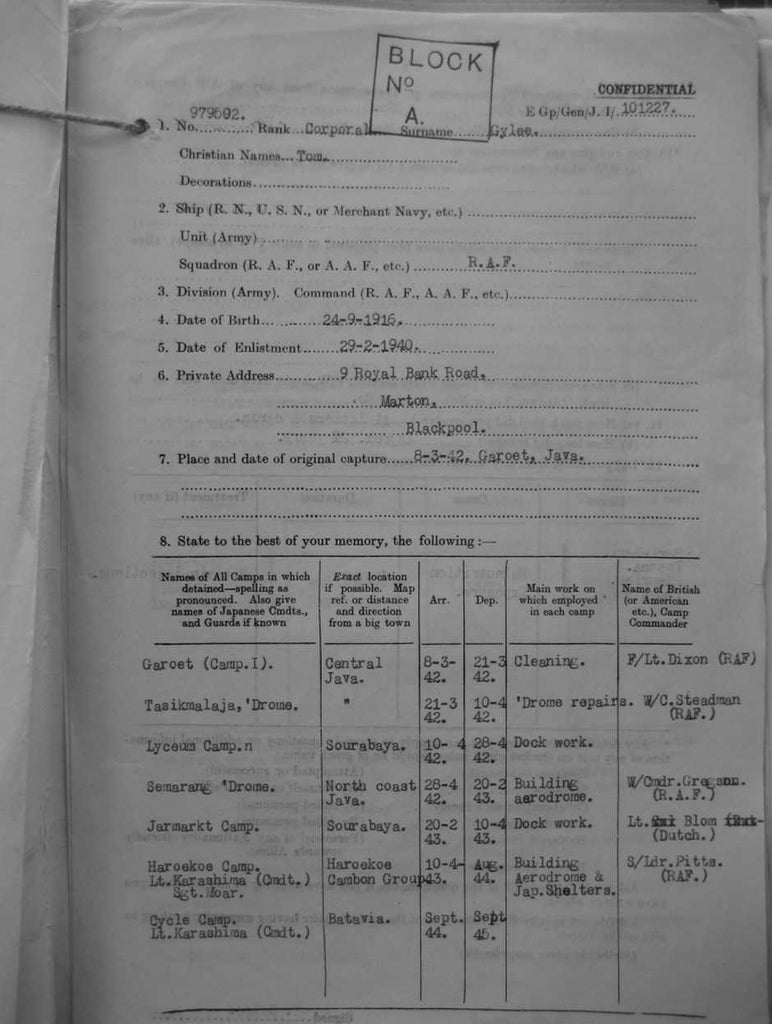 BLOCK
Nº
A.
CONFIDENTIAL
E Gp/Gen/J. I/.101227.
1. No. Rank...Corporal Surname......Gylee.
Christian Names...Tom.
Decorations
2. Ship (R. N., U. S. N., or Merchant Navy, etc.)
Unit (Army)
Squadron (R. A. F., or A. A. F., etc.) R.A.F.
3. Division (Army). Command (R. A. F., A. A. F., etc.)
4. Date of Birth 24-9-1916.
5. Date of Enlistment 29-2-1940.
6. Private Address 9 Royal Bank Road.
Marton.
Blackpool.
7. Place and date of original capture 8-3-42. Garoet, Java.
8. State to the best of your memory, the following :—
Names of All Camps in which detained—spelling as pronounced. Also give names of Japanese Cmdts., and Guards if known
Exact location if possible. Map ref. or distance and direction from a big town
Arr.
Dep.
Main work on which employed in each camp
Name of British (or American etc.), Camp Commander
Garoet (Camp.I). Central Java. 8-3-42. 21-3 42. Cleaning. F/Lt.Dixon (RAF)
Tasikmalaja,'Drome. " 21-3 42. 10-4 42. 'Drome repairs. W/C.Steadman (RAF.)
Lyceum Camp.n Sourabaya. 10- 4 42. 28-4 42. Dock work.
Semarang 'Drome. North coast Java. 28-4 42. 20-2 43. Building aerodrome. W/Cmdr.Gregson. (R.A.F.)
Jarmarkt Camp. Sourabaya. 20-2 43. 10-4 43. Dock work. Lt. Blom (Dutch.)
Haroekoe Camp. Lt.Karashima (Cmdt.) Sgt.Moar. Haroekoe Cambon Group 10-4-43. Aug. 44. Building Aerodrome & Jap.Shelters. S/Ldr.Pitts. (RAF.)
Cycle Camp. Lt.Karashima (Cmdt.) Batavia. Sept. 44. Sept 45.